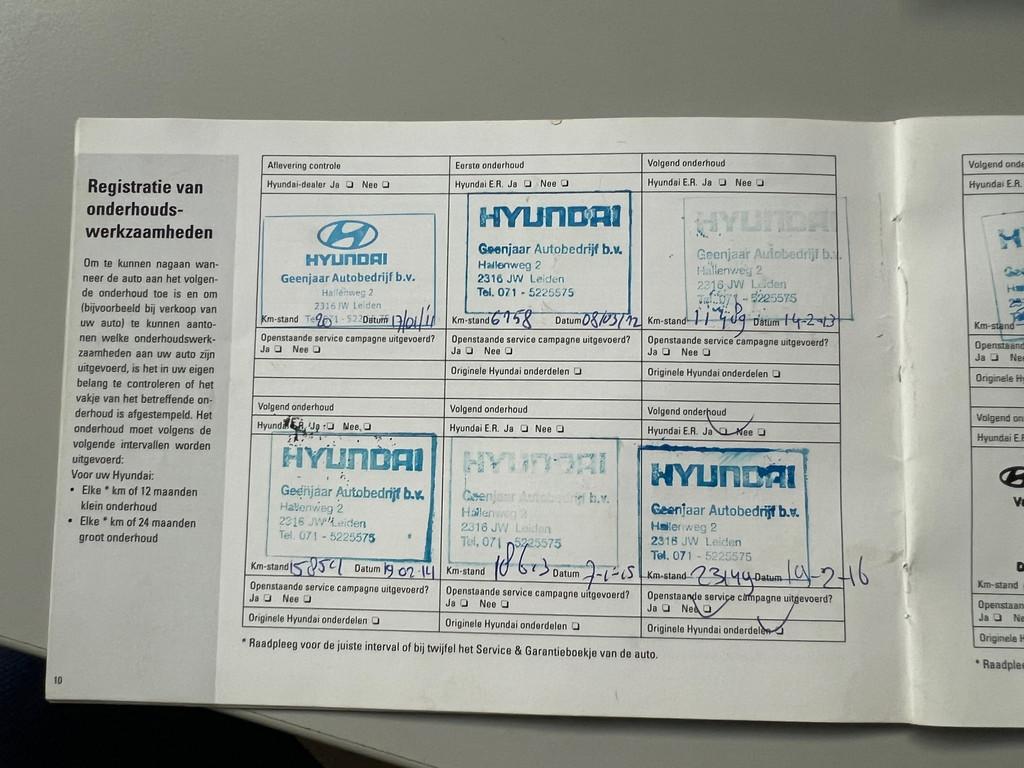 Registratie van
onderhouds-
werkzaamheden
Om te kunnen nagaan wan-
neer de auto aan het volgen-
de onderhoud toe is en om
(bijvoorbeeld bij verkoop van
uw auto) te kunnen aanto-
nen welke onderhoudswerk-
zaamheden aan uw auto zijn
uitgevoerd, is het in uw eigen
belang te controleren of het
vakje van het betreffende on-
derhoud is afgestempeld. Het
onderhoud moet volgens de
volgende intervallen worden
uitgevoerd:
Voor uw Hyundai:
• Elke * km of 12 maanden
klein onderhoud
• Elke * km of 24 maanden
groot onderhoud
10
Aflevering controle
Hyundai-dealer Ja ❑ Nee ❑
HYUNDAI
Geenjaar Autobedrijf b.v.
Hallenweg 2
2316 JW Leiden
Km-stand 20 Datum 17/01/11
Openstaande service campagne uitgevoerd?
Ja ❑ Nee ❑
Eerste onderhoud
Hyundai E.R. Ja ❑ Nee ❑
HYUNDAI
Geenjaar Autobedrijf b.v.
Hallenweg 2
2316 JW Leiden
Tel. 071 - 5225575
Km-stand 6758 Datum 08/03/12
Openstaande service campagne uitgevoerd?
Ja ❑ Nee ❑
Originele Hyundai onderdelen ❑
Volgend onderhoud
Hyundai E.R. Ja ❑ Nee ❑
HYUNDAI
Geenjaar Autobedrijf b.v.
Hallenweg 2
2316 JW Leiden
Tel. 071 - 5225575
Km-stand 11489 Datum 14-2-13
Openstaande service campagne uitgevoerd?
Ja ❑ Nee ❑
Originele Hyundai onderdelen ❑
Volgend onderhoud
Hyundai E.R. Ja ❑ Nee ❑
HYUNDAI
Geenjaar Autobedrijf b.v.
Hallenweg 2
2316 JW Leiden
Tel. 071 - 5225575
Km-stand Datum 19 02 14
Openstaande service campagne uitgevoerd?
Ja ❑ Nee ❑
Originele Hyundai onderdelen ❑
Volgend onderhoud
Hyundai E.R. Ja ❑ Nee ❑
HYUNDAI
Geenjaar Autobedrijf b.v.
Hallenweg 2
2316 JW Leiden
Tel. 071 - 5225575
Km-stand Datum
Openstaande service campagne uitgevoerd?
Ja ❑ Nee ❑
Originele Hyundai onderdelen ❑
Volgend onderhoud
Hyundai E.R. Ja ❑ Nee ❑
HYUNDAI
Geenjaar Autobedrijf b.v.
Hallenweg 2
2316 JW Leiden
Tel. 071 - 5225575
Km-stand 23149 Datum 19-2-16
Openstaande service campagne uitgevoerd?
Ja ❑ Nee ❑
Originele Hyundai onderdelen ❑
* Raadpleeg voor de juiste interval of bij twijfel het Service & Garantieboekje van de auto.
Volgend onde
Hyundai E.R.
Km-stand
Openstaand
Ja ❑ Nee
Originele H
Volgend on
Hyundai E.F
Km-stand
Openstaan
Ja ❑ Ne
Originele H
* Raadplee